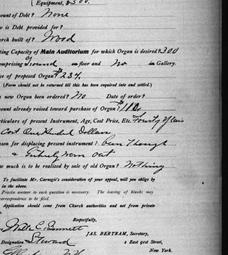 Equipment, $300.
Amount of Debt? None
is Debt provided for?
Church built of? Wood
Seating Capacity of Main Auditorium for which Organ is desired? 300
comprising Ground on floor and No in Gallery.
Price of proposed Organ?
(Form should not be returned till this has been inquired into and settled.)
new Organ been ordered? No Date of order?
Amount already raised toward purchase of Organ?
Particulars of present Instrument, Age, Cost Price, Etc.
Cost One Hundred Dollars
Reason for displacing present instrument?
Entirely worn out
much is to be realized by sale of old Organ? Nothing
To facilitate Mr. Carnegie's consideration of your appeal, will you oblige by
Precise answer to each question is necessary. The leaving of blanks may
correspondence to be
Application should come from Church authorities and not from private
Respectfully,
JAS. BERTRAM, Secretary,
Designation Steward
2 East 91st Street,
New York.